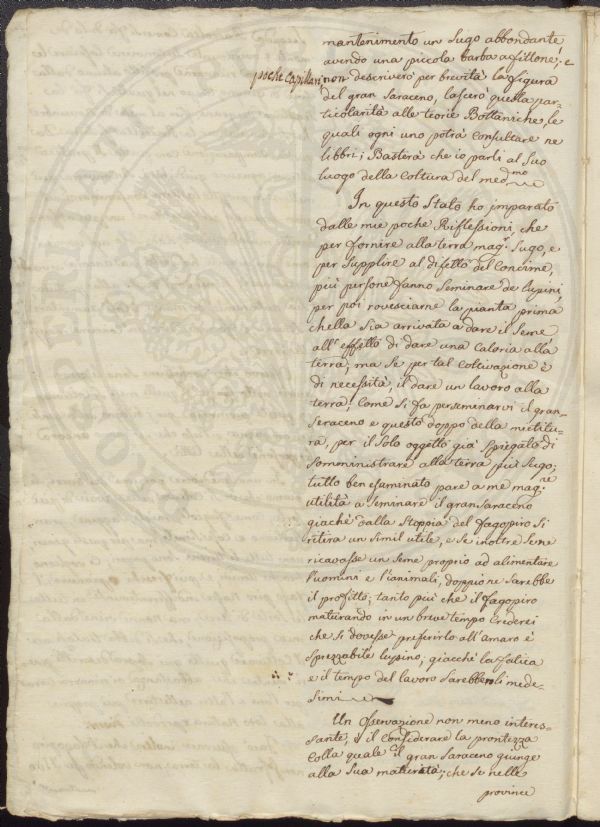 mantenimento un Sugo abbondante,
avendo una piccola barba a fittone, e
poche Capillari, non descriverò per brevità la figura
del gran Saraceno, lascerò questa par-
ticolarità alle teorie Bottaniche, le
quali ogni uno potrà consultare ne
libbri; Basterà che io parli al Suo
luogo della Coltura del med.mo
In questo Stato ho imparato
dalle mie poche Riflessioni, che
per fornire alla terra mag.r Sugo, e
per Supplire al difetto del Concime,
più persone fanno Seminare de Lupini,
per poi rovesciarne la pianta prima
chella Sia arrivata a dare il Seme
all'effetto di dare una Caloria alla
terra; ma Se per tal Coltivazione è
di necessità, il dare un lavoro alla
terra, Come Si fa perseminarvi il gran-
Seraceno e questo doppo della mietitu-
ra, per il Solo oggetto già Spiegato di
Somministrare alla terra più Sugo;
tutto ben esaminato pare a me mag.re
utilità a Seminare il gran Saraceno
giachè dalla Stoppia del fagopiro Si
ritira un Simil utile, e Se inoltre Sene
ricavasse un Seme proprio ad alimentare
l'uomini e l'animali, doppio ne Sarebbe
il profitto; tanto più che il fagopiro
maturando in un breve tempo Crederei
che Si dovesse preferirlo all'amaro è
Sprezzabile lupino; giacchè la fatica
e il tempo del lavoro Sarebbero li mede-
Simi
Un Osservazione non meno interes-
sante, è il Considerare la prontezza
Colla quale il gran Saraceno giunge
alla Sua maturità; che Se nelle
province